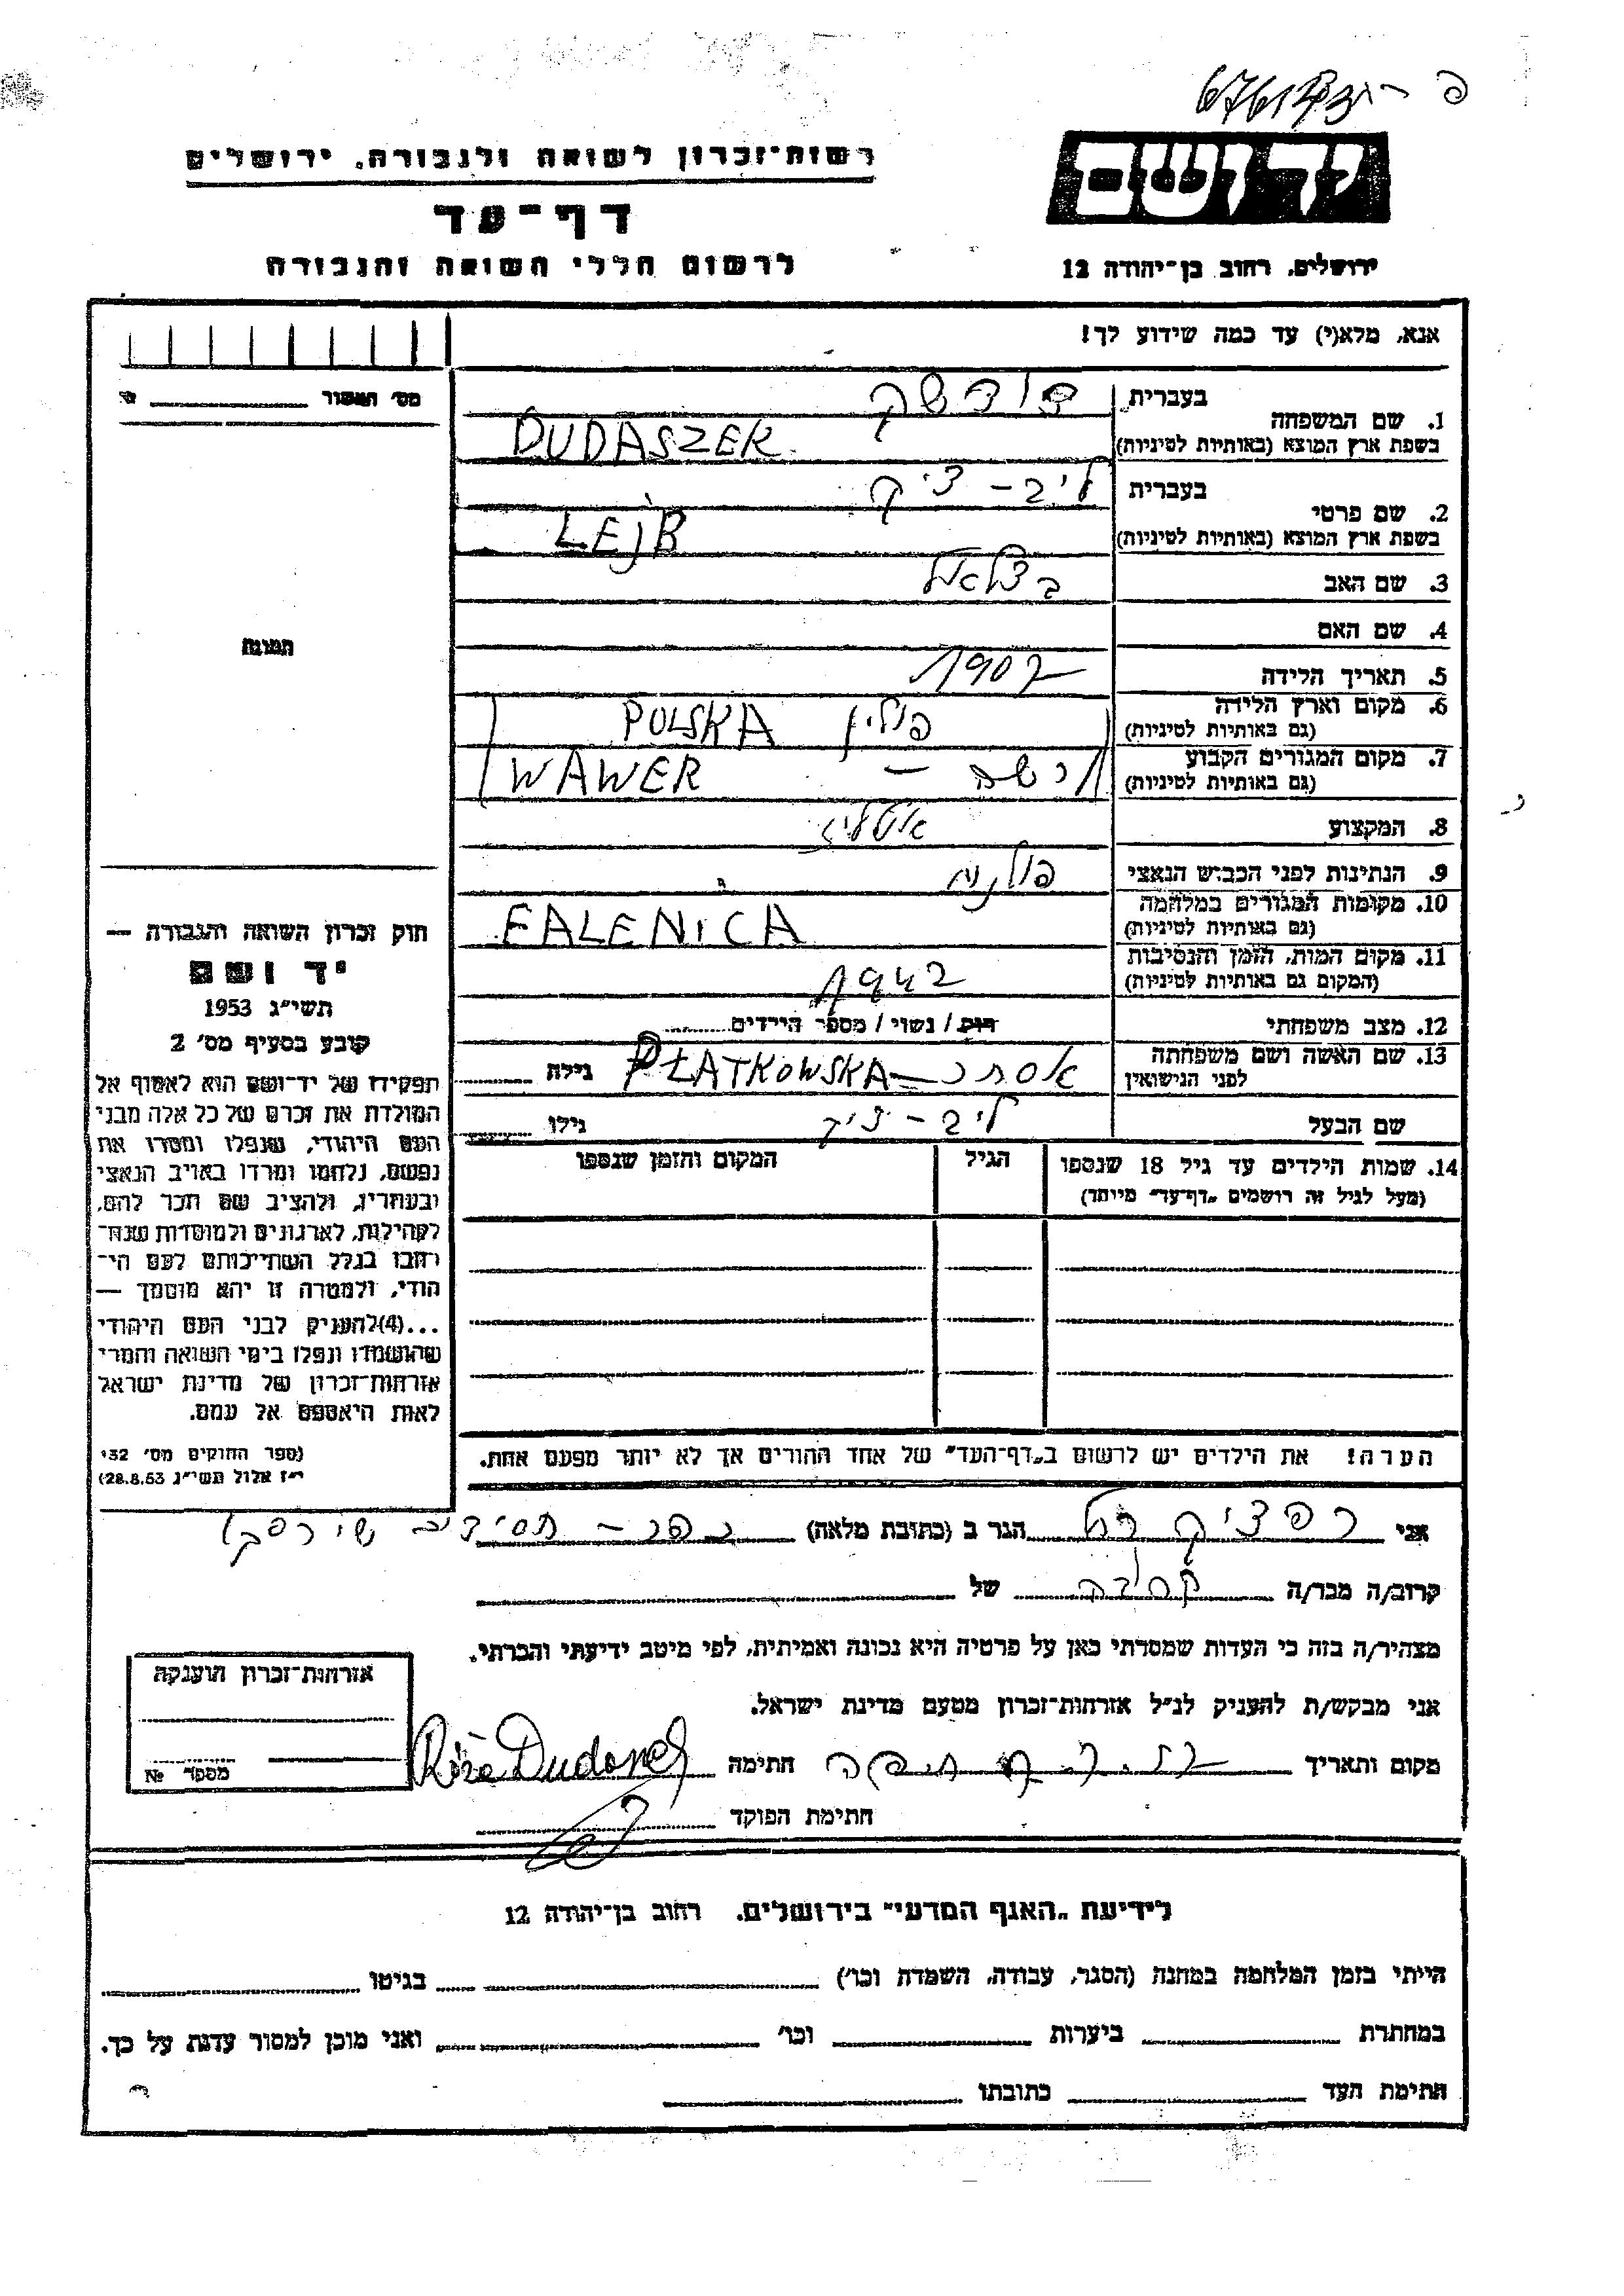 רשות-זכרון לשואה ולגבורה, ירושלים
יד ושם
דף-עד
לרשום חללי השואה והגבורה
ירושלים, רחוב בן-יהודה 12
אנא, מלא(י) עד כמה שידוע לך!
מס' האשור
1. שם המשפחה
בעברית
בשפת ארץ המוצא (באותיות לטיניות)
DUDASZEK
2. שם פרטי
בעברית ליב - איק
בשפת ארץ המוצא (באותיות לטיניות) LEJB
3. שם האב בצלאל
4. שם האם
5. תאריך הלידה 1907
6. מקום וארץ הלידה (גם באותיות לטיניות) פולין POLSKA
7. מקום המגורים הקבוע (גם באותיות לטיניות) WAWER
8. המקצוע
9. הנתינות לפני הכבוש הנאצי פולנית
10. מקומות המגורים במלחמה (גם באותיות לטיניות) FALENICA
11. מקום המות, הזמן והנסיבות (המקום גם באותיות לטיניות) 1942
12. מצב משפחתי רווק / נשוי / מספר הילדים
13. שם האשה ושם משפחתה לפני הנישואין אסתר - PŁATKOWSKA גילה
שם הבעל ליב - איק גילו
14. שמות הילדים עד גיל 18 שנספו
(מעל לגיל זה רושמים "דף-עד" מיוחד)
הגיל
המקום והזמן שנספו
הערה! את הילדים יש לרשום ב"דף-העד" של אחד ההורים אך לא יותר מפעם אחת.
תמונה
חוק זכרון השואה והגבורה —
יד ושם
תשי"ג 1953
קובע בסעיף מס' 2
תפקידו של יד-ושם הוא לאסוף אל
המולדת את זכרם של כל אלה מבני
העם היהודי, שנפלו ומסרו את
נפשם, נלחמו ומרדו באויב הנאצי
ובעוזריו, ולהציב שם וזכר להם,
לקהילות, לארגונים ולמוסדות שנח-
רבו בגלל השתייכותם לעם הי-
הודי, ולמטרה זו יהא מוסמך —
...(4) להעניק לבני העם היהודי
שהושמדו ונפלו בימי השואה והמרי
אזרחות-זכרון של מדינת ישראל
לאות היאספם אל עמם.
(ספר החוקים מס' 132
י"ז אלול תשי"ג 28.8.53)
אני הגר ב (כתובת מלאה) כפר - חסידים
קרוב/ה מכר/ה קרובה של
מצהיר/ה בזה כי העדות שמסרתי כאן על פרטיה היא נכונה ואמיתית, לפי מיטב ידיעתי והכרתי.
אני מבקש/ת להעניק לנ"ל אזרחות-זכרון מטעם מדינת ישראל.
מקום ותאריך חיפה חתימה
חתימת הפוקד
אזרחות-זכרון הוענקה
מספר №
לידיעת "האגף המדעי" בירושלים, רחוב בן-יהודה 12
הייתי בזמן המלחמה במחנה (הסגר, עבודה, השמדה וכו') בגיטו
במחתרת ביערות וכו' ואני מוכן למסור עדות על כך.
חתימת העד כתובתו